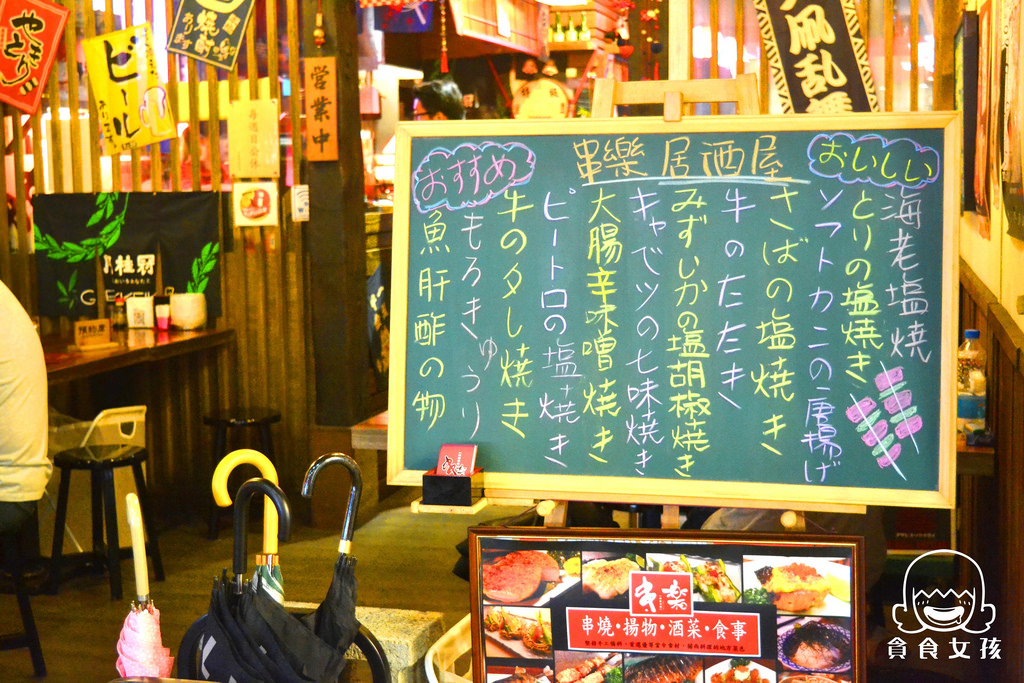 やきとり
ビール
あります
営業中
おすすめ
串樂 居酒屋
おいしい
海老塩焼
とりの塩焼き
ソフトカニの唐揚げ
さばの塩焼き
牛のたたき
みずいかの塩胡椒焼き
キャベツの七味焼き
大腸辛味噌焼き
ピートロの塩焼き
牛のタし焼き
もろきゅうり
魚肝酢の物
月桂冠
預約席
串樂
串燒・揚物・酒菜・食事
貪食女孩